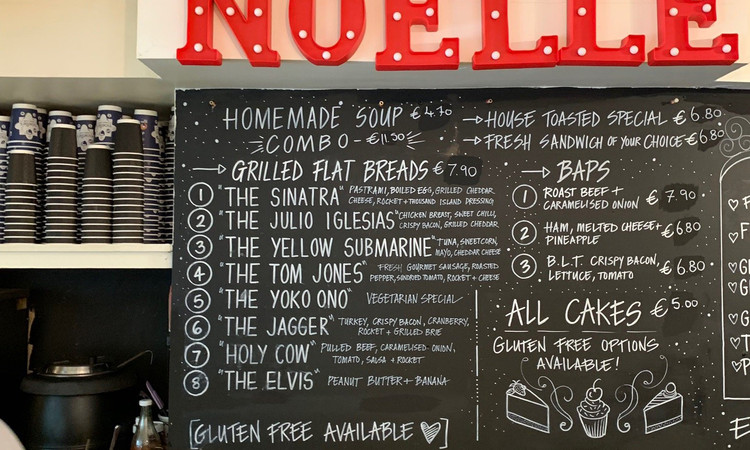 NOELLE
HOMEMADE SOUP €4.70
COMBO - €11.30
→ HOUSE TOASTED SPECIAL €6.80
→ FRESH SANDWICH OF YOUR CHOICE €6.80
→ GRILLED FLAT BREADS €7.90
1 "THE SINATRA" PASTRAMI, BOILED EGG, GRILLED CHEDDAR
CHEESE, ROCKET + THOUSAND ISLAND DRESSING
2 "THE JULIO IGLESIAS" CHICKEN BREAST, SWEET CHILLI,
CRISPY BACON, GRILLED CHEDDAR
3 "THE YELLOW SUBMARINE" TUNA, SWEETCORN,
MAYO, CHEDDAR CHEESE
4 "THE TOM JONES" FRESH GOURMET SAUSAGE, ROASTED
PEPPER, SUNDRIED TOMATO, ROCKET + CHEESE
5 "THE YOKO ONO" VEGETARIAN SPECIAL
6 "THE JAGGER" TURKEY, CRISPY BACON, CRANBERRY,
ROCKET + GRILLED BRIE
7 "HOLY COW" PULLED BEEF, CARAMELISED ONION,
TOMATO, SALSA + ROCKET
8 "THE ELVIS" PEANUT BUTTER + BANANA
[GLUTEN FREE AVAILABLE ♡]
→ BAPS
1 ROAST BEEF +
CARAMELISED ONION €7.90
2 HAM, MELTED CHEESE +
PINEAPPLE €6.80
3 B.L.T CRISPY BACON,
LETTUCE, TOMATO €6.80
ALL CAKES €5.00
GLUTEN FREE OPTIONS
AVAILABLE!